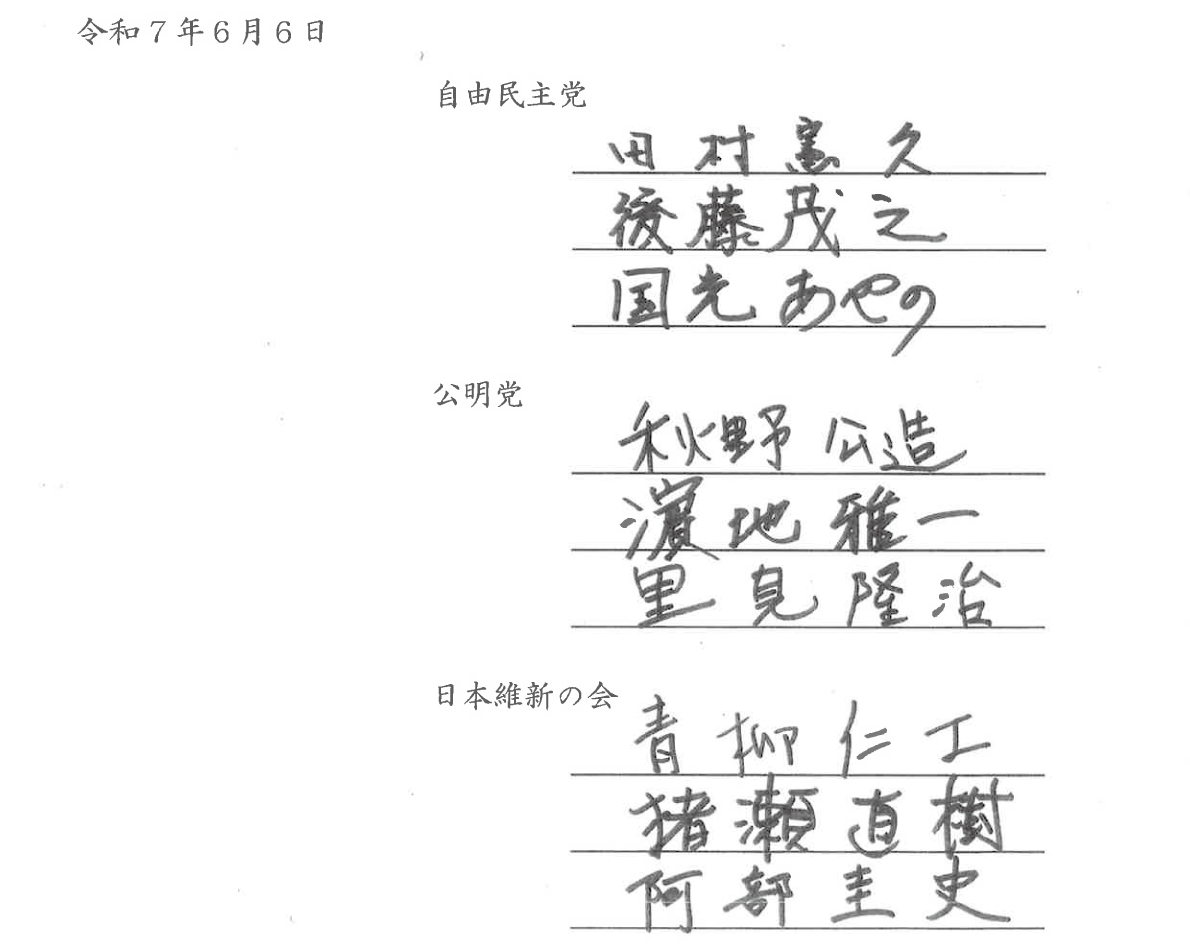 令和７年６月６日
自由民主党
田村憲久
後藤茂之
国光あやの
公明党
秋野公造
濵地雅一
里見隆治
日本維新の会
青柳仁士
猪瀬直樹
阿部圭史